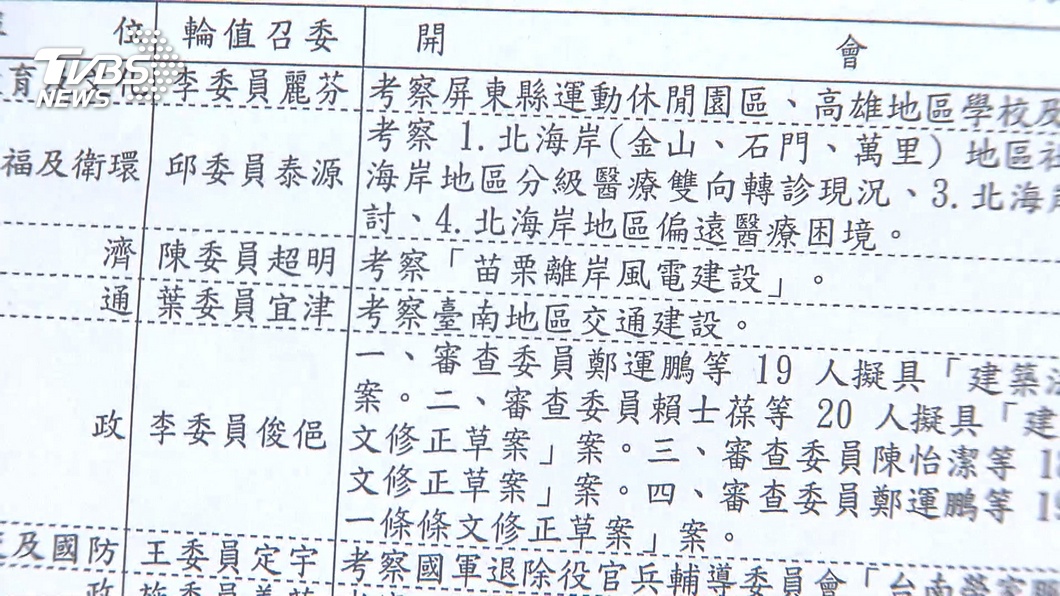 位 輪值召委 開 會
TVBS
NEWS
育 李委員麗芬 考察屏東縣運動休閒園區、高雄地區學校及
福及衛環 邱委員泰源 考察 1.北海岸(金山、石門、萬里) 地區社
海岸地區分級醫療雙向轉診現況、3.北海岸
討、4.北海岸地區偏遠醫療困境。
濟 陳委員超明 考察「苗栗離岸風電建設」。
通 葉委員宜津 考察臺南地區交通建設。
政 李委員俊俋 一、審查委員鄭運鵬等 19 人擬具「建築法
案。二、審查委員賴士葆等 20 人擬具「建
文修正草案」案。三、審查委員陳怡潔等 1
文修正草案」案。四、審查委員鄭運鵬等 1
一條條文修正草案」案。
及國防 王委員定宇 考察國軍退除役官兵輔導委員會「台南榮家
政